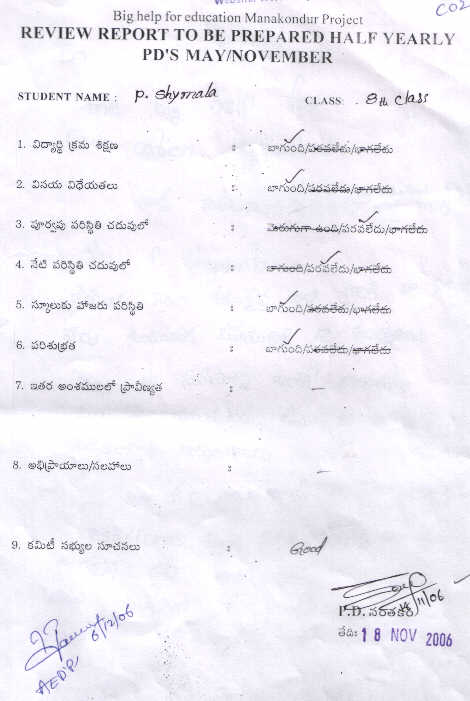 CO2
Big help for education Manakondur Project
REVIEW REPORT TO BE PREPARED HALF YEARLY
PD'S MAY/NOVEMBER
STUDENT NAME : P. Shymala CLASS : 8th class
1. విద్యార్థి క్రమ శిక్షణ : బాగుంది/పరవలేదు/బాగలేదు
2. వినయ విధేయతలు : బాగుంది/పరవలేదు/బాగలేదు
3. పూర్వపు పరిస్థితి చదువులో : మెరుగుగా ఉంది/పరవలేదు/బాగలేదు
4. నేటి పరిస్థితి చదువులో : బాగుంది/పరవలేదు/బాగలేదు
5. స్కూలుకు హాజరు పరిస్థితి : బాగుంది/పరవలేదు/బాగలేదు
6. పరిశుభ్రత : బాగుంది/పరవలేదు/బాగలేదు
7. ఇతర అంశములలో ప్రావీణ్యత : —
8. అభిప్రాయాలు/సలహాలు : —
9. కమిటీ సభ్యుల సూచనలు : Good
11/06
P.D. సంతకం
తేది: 18 NOV 2006
6/12/06
AEDP